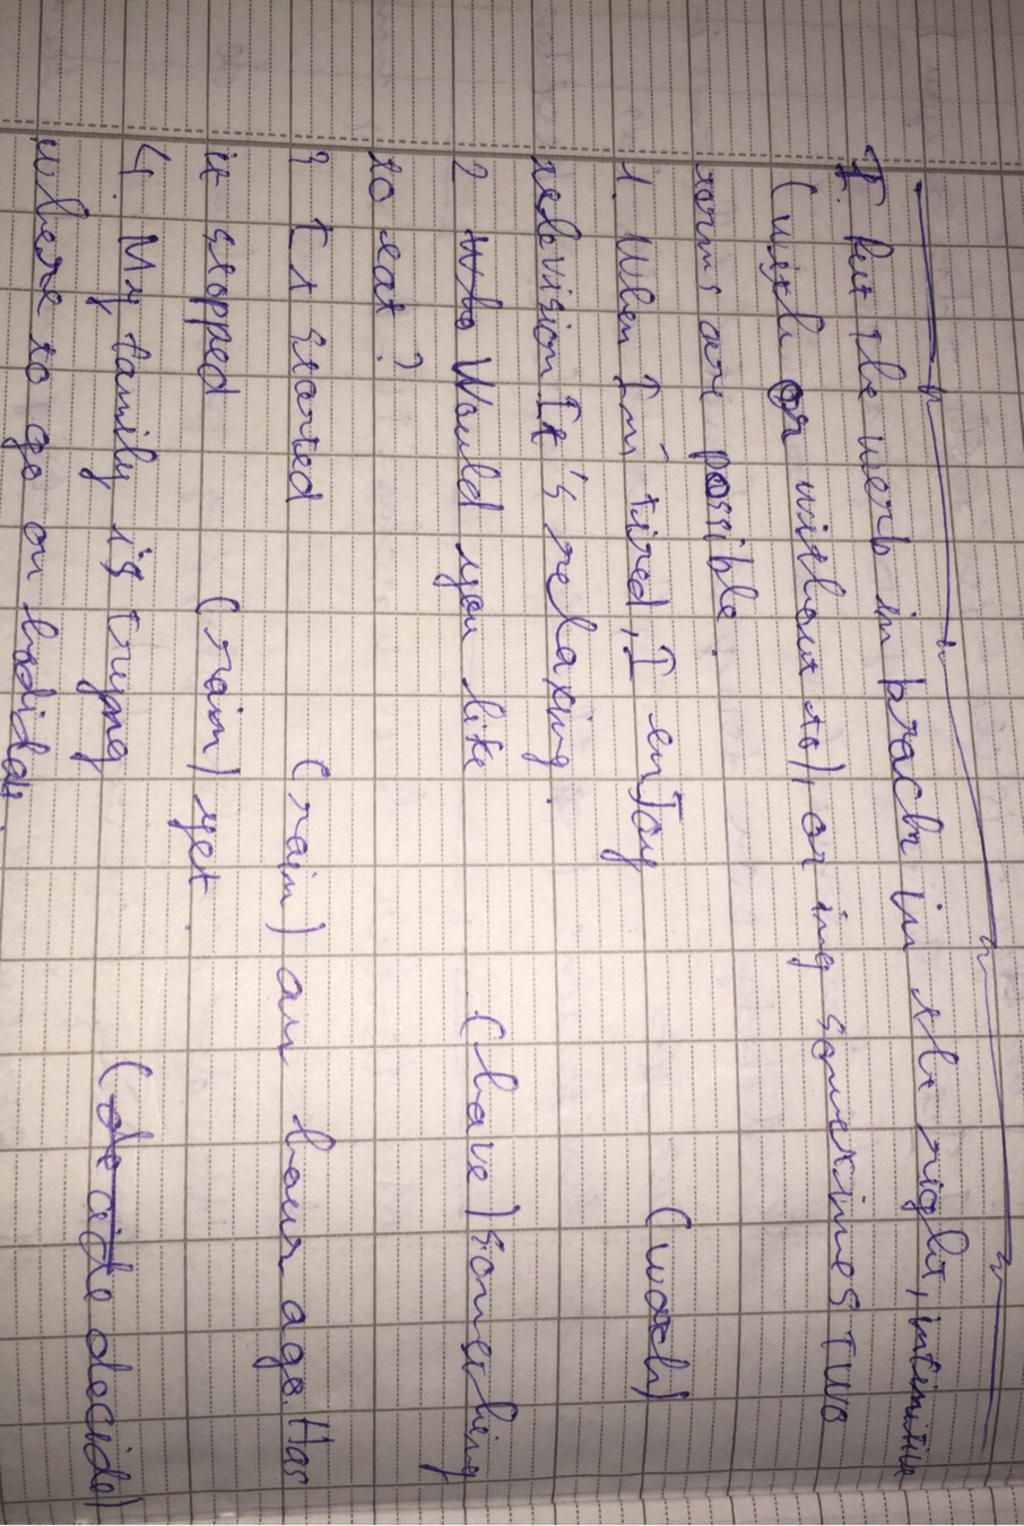 I. Put the verb in brackr in the right, infinitive
(with or without to), or ing sometimes two
forms are possible.
1. When I'm tired, I enJoy (watch)
television It's relaxing.
2 Would you like (have) something
to eat?
3 It started (rain) an hour ago. Has
it stopped (rain) yet.
4. My family is trying (decide)
where to go on holiday.